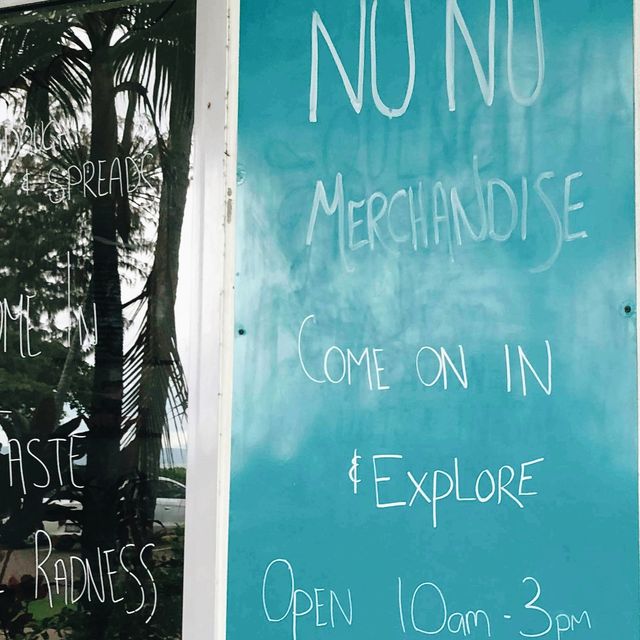 & SPREADS
IN
TASTE
RADNESS
NU NU
MERCHANDISE
COME ON IN
& EXPLORE
OPEN 10am - 3pm